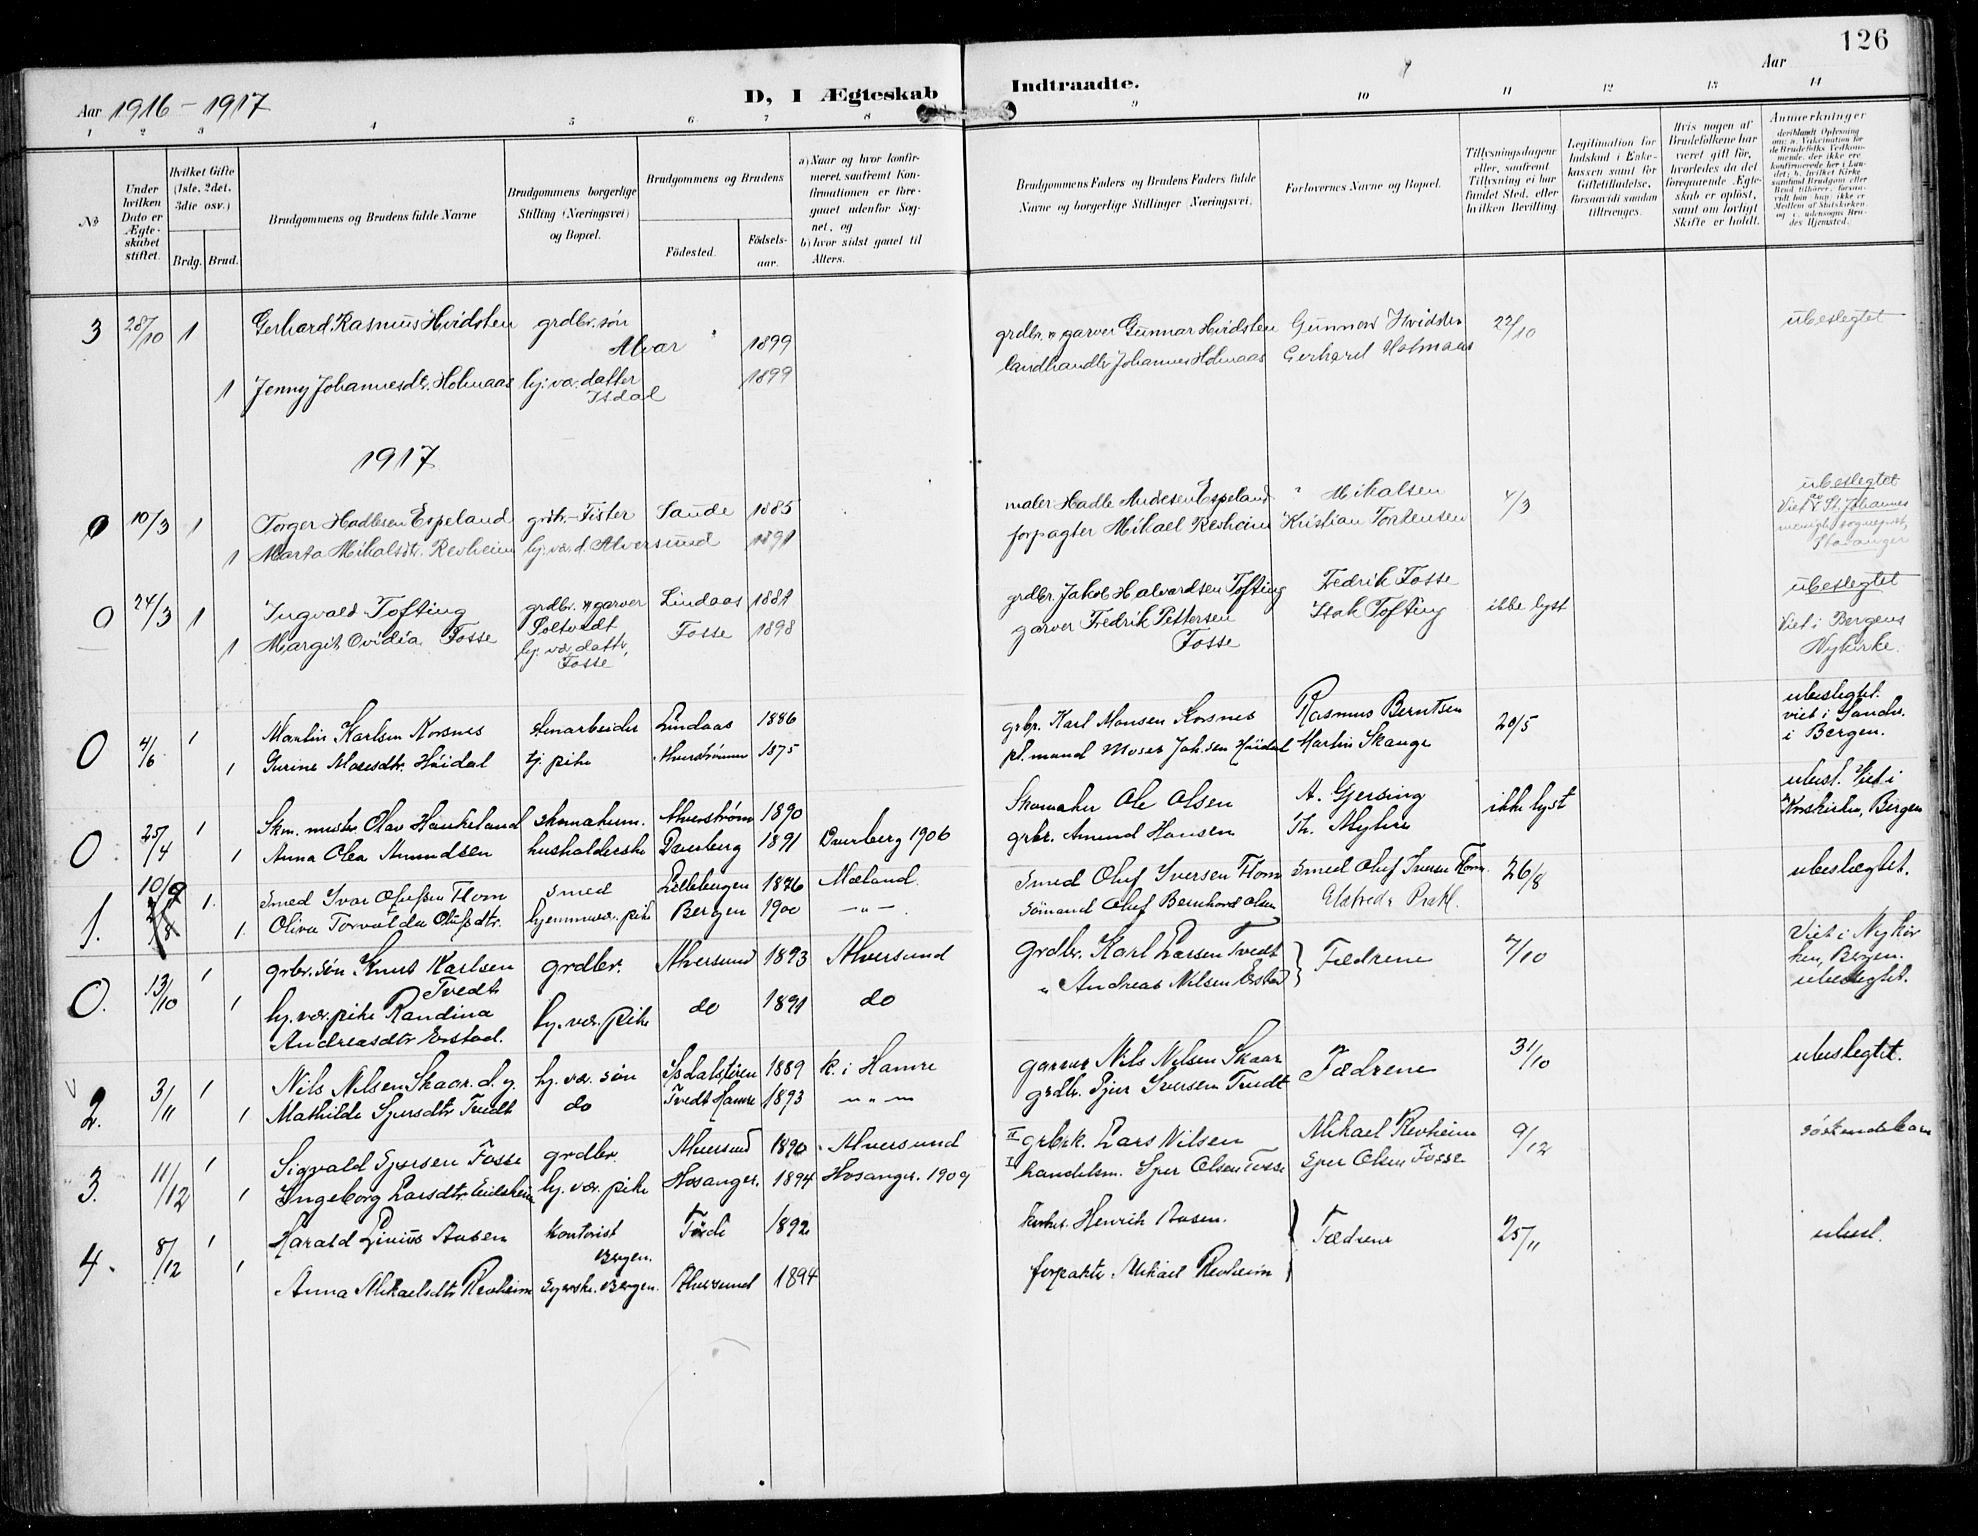 126
Aar 1916 - 1917
D, I Ægteskab Indtraadte.
Aar
1 2 3 4 5 6 7 8 9 10 11 12 13 14
No
Under hvilken Dato er Ægteskabet stiftet.
Hvilket Gifte (1ste, 2det, 3die osv.)
Brdg. Brud.
Brudgommens og Brudens fulde Navne
Brudgommens borgerlige Stilling (Næringsvei) og Bopæl.
Brudgommens og Brudens
Födested. Födselsaar.
a) Naar og hvor konfirmeret, saafremt Konfirmationen er foregaaet udenfor Sognet, og
b) hvor sidst gaaet til Alters.
Brudgommens Faders og Brudens Faders fulde Navne og borgerlige Stillinger (Næringsvei).
Forlovernes Navne og Bopæl.
Tillysningsdagene eller, saafremt Tillysning ei har fundet Sted, efter hvilken Bevilling
Legitimation for Indskud i Enkekassen samt for Giftetilladelse, forsaavidt saadan tiltrænges.
Hvis nogen af Brudefolkene har været gift før, hvorledes da det foregaaende Ægteskab er opløst, samt om lovligt Skifte er holdt.
Anmerkninger
3 28/10 1 Gerhard Rasmus Hvidsten grdbr. søn Alvær 1899 grdbr. & garver Gunnar Hvidsten Gunnar Hvidsten 22/10 ubeslegtet
1 Jenny Johannesdr. Holmaas hj. væ. datter Isdal 1899 landhandler Johannes Holmaas Gerhard Holmaas
1917
0 10/3 1 Torger Hadlesen Espeland grdbr. - Fister Saude 1885 maler Hadle Andesen Espeland " Mikalsen 4/3 ubeslegtet
1 Marta Mikalsdtr. Revheim hj. væ. d. Alversund 1891 forpagter Mikael Revheim Kristian Torkensen Viet av St. Johannes menigh. sogneprest, Stavanger
0 24/3 1 Ingvald Tofting grdbr. & garver Soltvedt Lindaas 1881 grdbr. Jakob Halvardsen Tofting Fredrik Fosse ikke lyst ubeslegtet
1 Margit Ovidia Fosse hj. væ. dattr, Fosse Fosse 1898 garver Fredrik Pettersen Fosse Isak Tofting Viet i Bergens Nykirke.
0 4/6 1 Martin Karlsen Korsnes Stenarbeider Lindaas 1886 grbr. Karl Monsen Korsnes Rasmus Berntsen 20/5 ubeslegtet. viet i Sandv. i Bergen.
1 Gurine Mosesdtr. Höidal tj. pike Alverstrømmen 1875 pl. mand Moses Joh.sen Höidal Martin Skauge
0 25/4 1 Skm. mester Olav Haukeland skomakerm. Alverstrøm 1890 Skomaker Ole Olsen A. Gjersing ikke lyst ubesl. Viet i Korskirken, Bergen
1 Anna Olea Amundsen husholderske Dverberg 1891 Dverberg 1906 grbr. Amund Hansen Th. Myhre
1. 10/9 1. Smed Ivar Olufsen Flom smed Lillebergen 1876 Mæland. Smed Oluf Iversen Flom smed Oluf Iversen Flom 26/8 ubeslægtet.
1. Oliva Torvalda Olufsdtr. hjemmevær. pike Bergen 1900 -"- Sömand Oluf Bernhard Olsen
0. 13/10 1 grbr. søn Knut Karlsen Tvedt grdbr. Alversund 1893 Alversund grdbr. Karl Larsen Tvedt Fædrene 7/10 Viet i Nykirken, Bergen. ubeslegtet.
1 hj. vær. pike Randina Andreasdtr Erstad. hj. vær. pike do 1891 do " Andreas Nilsen Erstad
2. 3/11 1 Nils Nilsen Skaar d. y. hj. vær. søn Isdalstøen 1889 k. i Hamre garver Nils Nilsen Skaar Fædrene 31/10 ubeslegtet.
1 Mathilde Sjursdtr Tvedt do Tvedt Hamre 1893 -"- grdbr. Sjur Iversen Tvedt
3. 11/12 1 Sigvald Sjursen Fosse grdbr. Alversund 1890 Alversund II grbrk. Lars Nilsen Mikael Revheim 9/12 söskendebarn
1 Ingeborg Larsdtr Eidsheim hj. vær. pike Hosanger. 1894 Hosanger. 1909 I handelsm. Sjur Olsen Fosse Sjur Olsen Fosse
4. 8/12 1 Harald Livius Aasen kontorist Bergen. Förde 1892 Henrik Aasen. Fædrene 25/11 ubesl.
1 Anna Mikaelsdtr Revheim Syerske. Bergen. Alversund 1894 forpakter Mikael Revheim